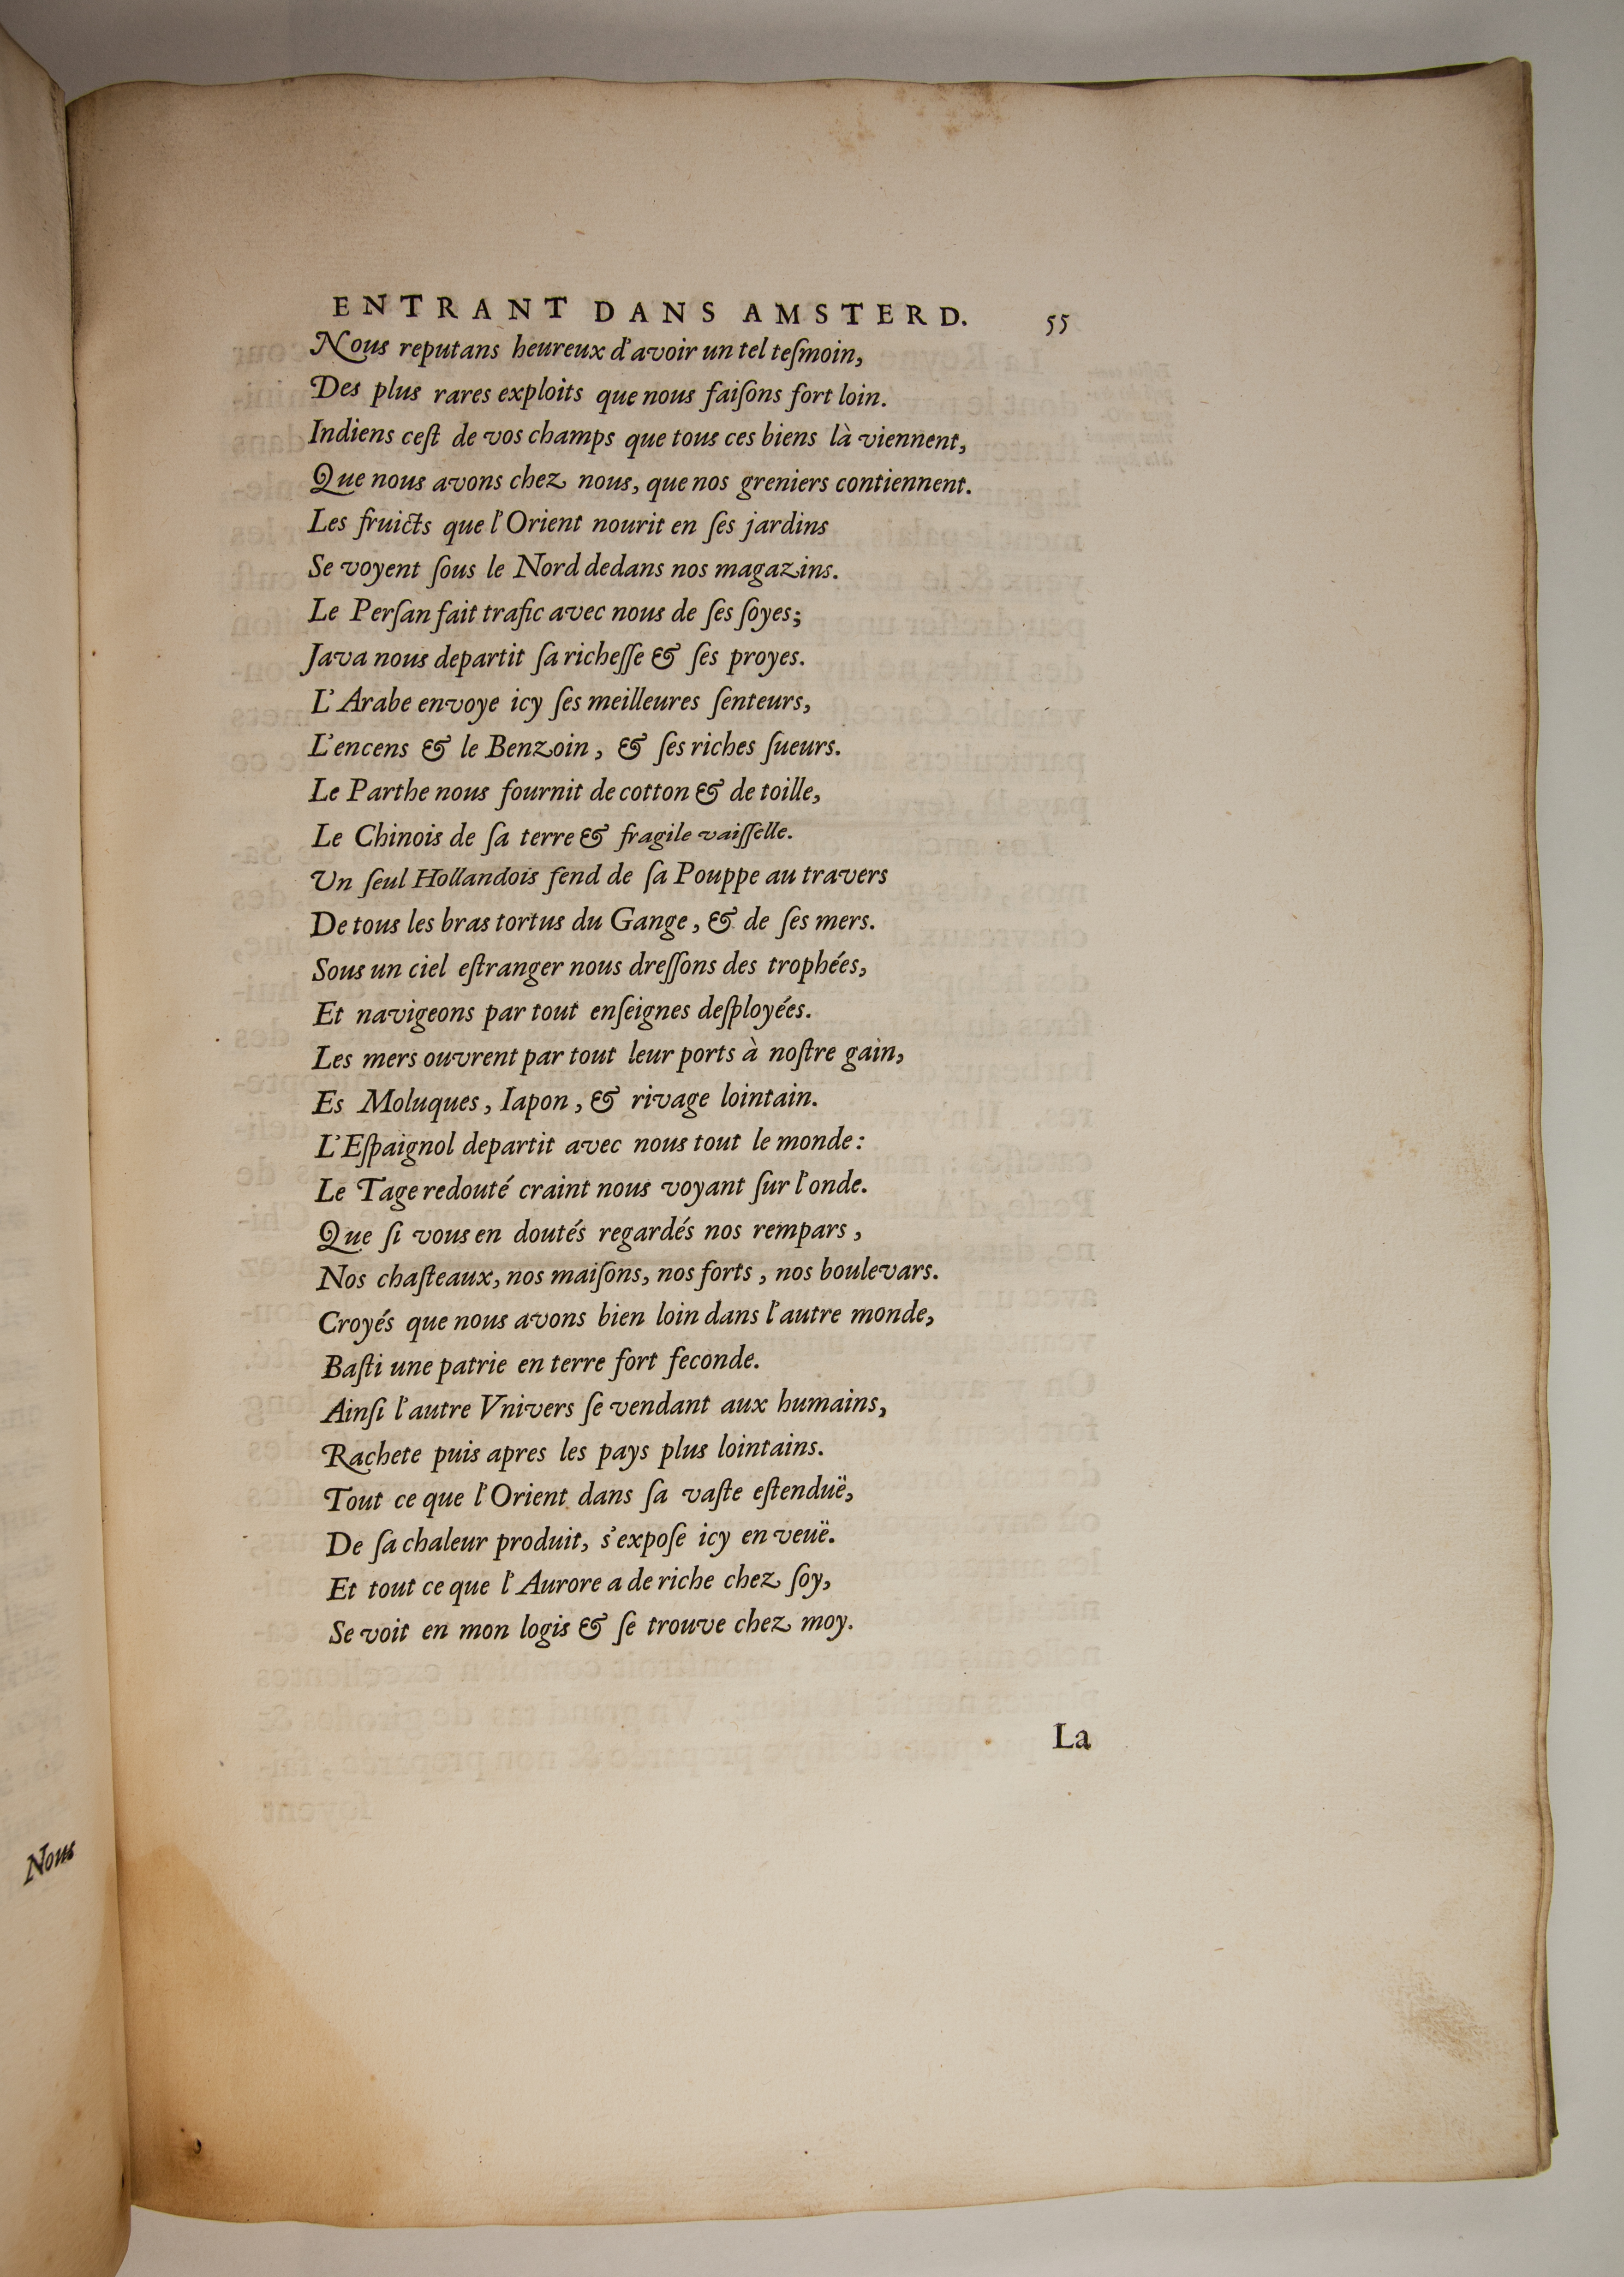 ENTRANT DANS AMSTERD. 55
Nous reputans heureux d'avoir un tel teſmoin,
Des plus rares exploits que nous faiſons fort loin.
Indiens ceſt de vos champs que tous ces biens là viennent,
Que nous avons chez nous, que nos greniers contiennent.
Les fruicts que l'Orient nourit en ſes jardins
Se voyent ſous le Nord dedans nos magazins.
Le Perſan fait trafic avec nous de ſes ſoyes;
Java nous departit ſa richeſſe & ſes proyes.
L'Arabe envoye icy ſes meilleures ſenteurs,
L'encens & le Benzoin, & ſes riches ſueurs.
Le Parthe nous fournit de cotton & de toille,
Le Chinois de ſa terre & fragile vaiſſelle.
Un ſeul Hollandois fend de ſa Pouppe au travers
De tous les bras tortus du Gange, & de ſes mers.
Sous un ciel eſtranger nous dreſſons des trophées,
Et navigeons par tout enſeignes deſployées.
Les mers ouvrent par tout leur ports à noſtre gain,
Es Moluques, Iapon, & rivage lointain.
L'Eſpaignol departit avec nous tout le monde:
Le Tage redouté craint nous voyant ſur l'onde.
Que ſi vous en doutés regardés nos rempars,
Nos chaſteaux, nos maiſons, nos forts, nos boulevars.
Croyés que nous avons bien loin dans l'autre monde,
Baſti une patrie en terre fort feconde.
Ainſi l'autre Vnivers ſe vendant aux humains,
Rachete puis apres les pays plus lointains.
Tout ce que l'Orient dans ſa vaſte eſtenduë,
De ſa chaleur produit, s'expoſe icy en veuë.
Et tout ce que l'Aurore a de riche chez ſoy,
Se voit en mon logis & ſe trouve chez moy.
La
Nous